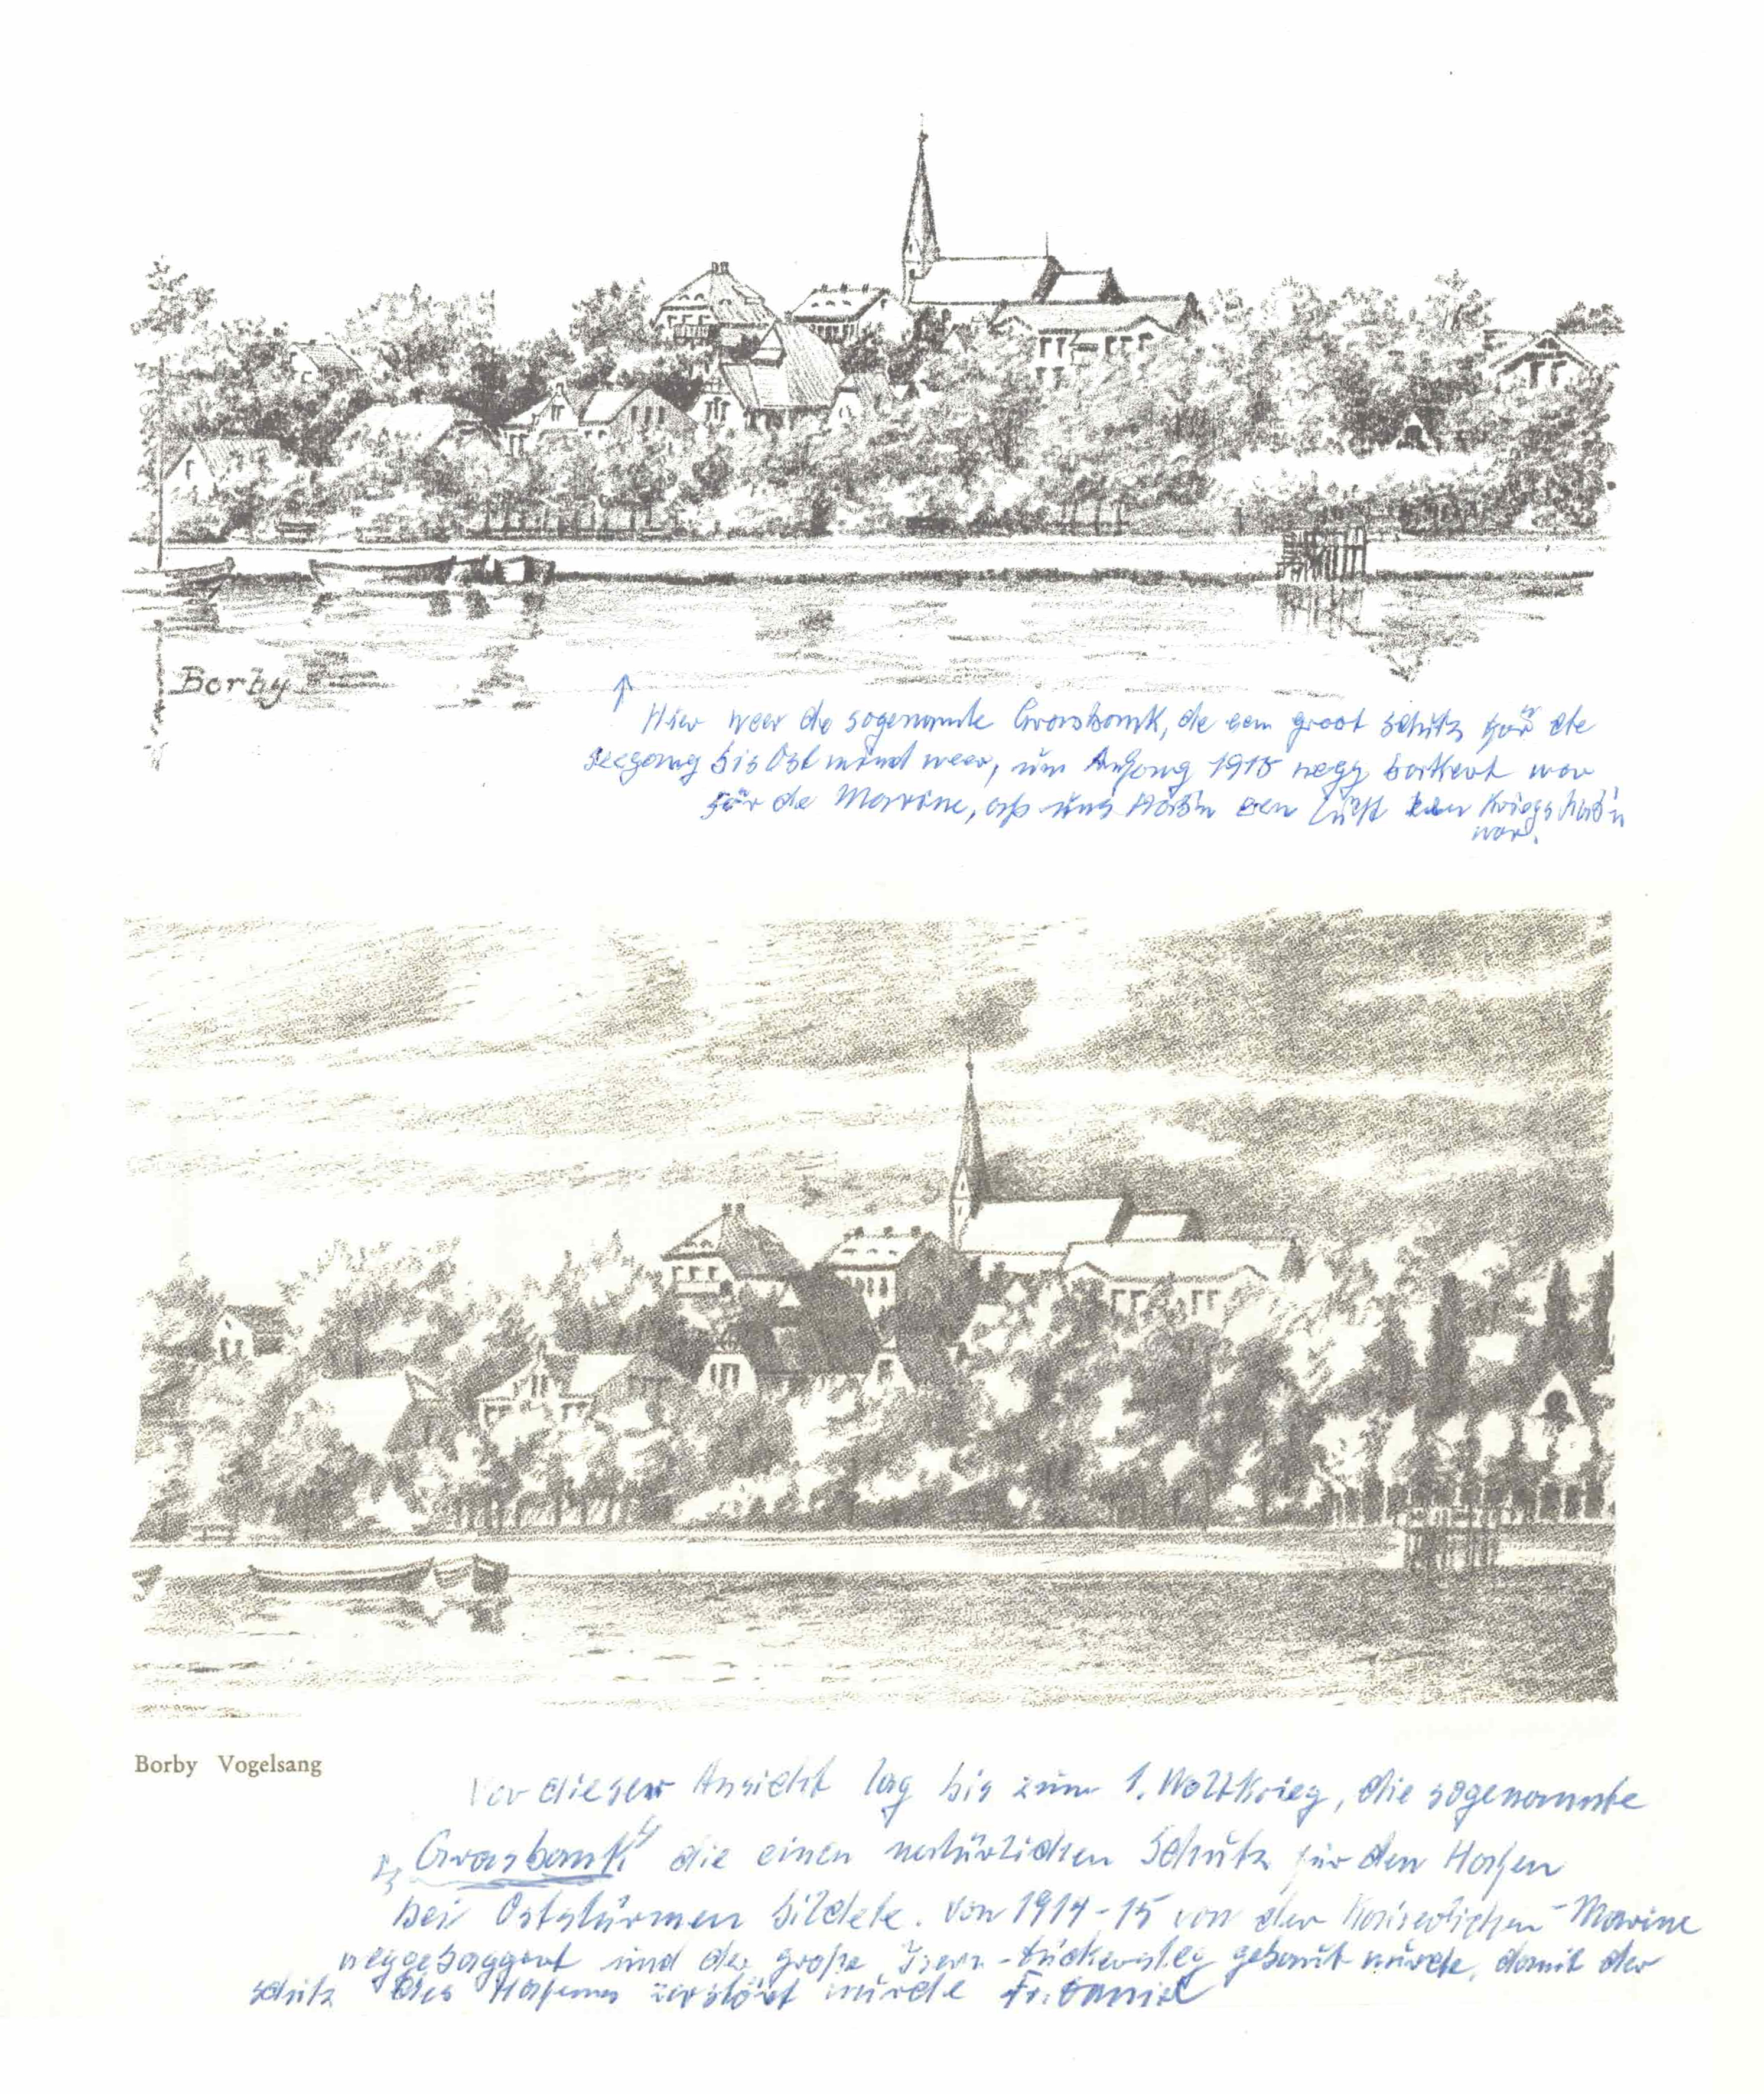 Borby
Hier weer de sogenannte Grasbank, de een groot Schutz för de
Seegang bis Ostwind weer, um Anfang 1915 wegg war
för de Marine, uns een Kriegshab'n
war.
Borby Vogelsang
Vor dieser Ansicht lag bis zum 1. Weltkrieg, die sogenannte
„Grasbank" die einen natürlichen Schutz für den Hafen
bei Oststürmen bildete. Von 1914-15 von der Kaiserlichen-Marine
weggebaggert und der große gebaut wurde, damit der
Schutz des Hafens zerstört wurde Fr. Daniel